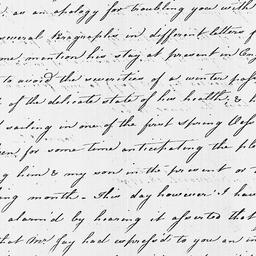 as an apology for troubling you with
several Paragraphs in different letters f
me mention his stay at present in Eng
to avoid the severities of a winter pass
of the delicate state of his health, &
sailing in one of the first Spring Vess
for some time anticipating the ple
g him & my son in the present or
ing month. This day however I have
alarm'd by hearing it asserted that
that Mr. Jay had express'd to you an in